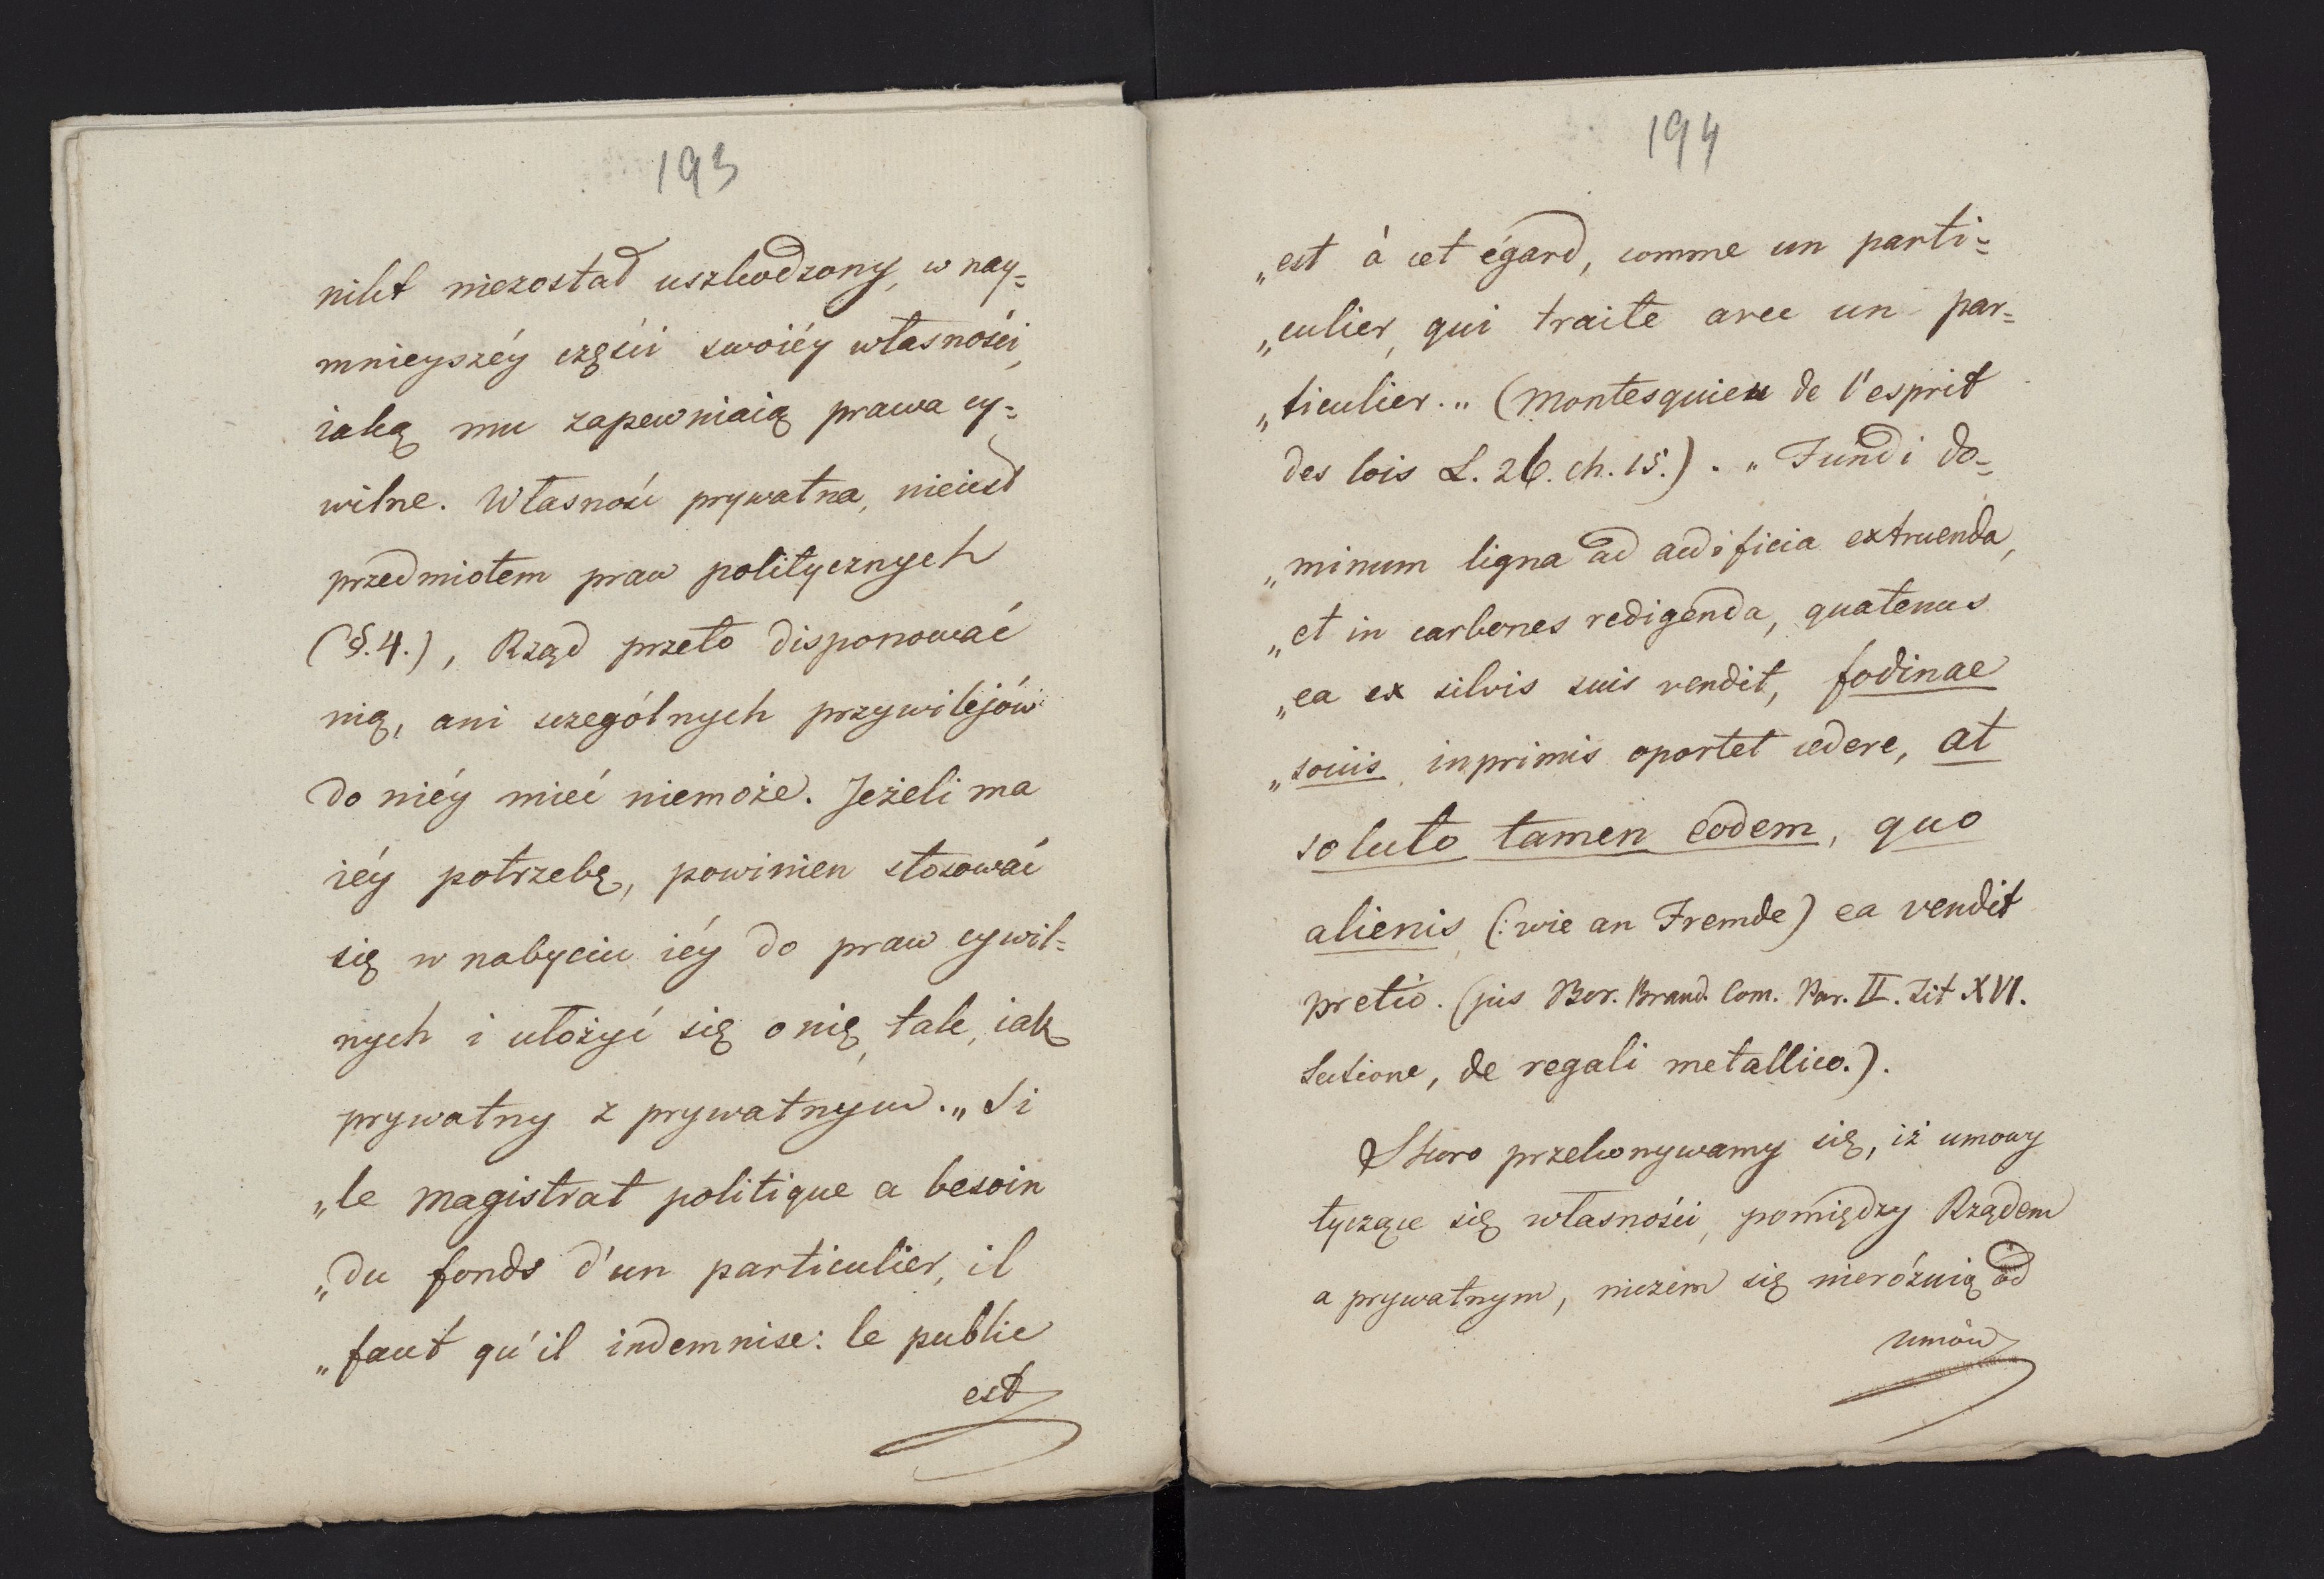 193
nikt niezostał uszkodzony, w nay=
mnieyszéy części swoiéy własności,
iaką mu zapewniaią prawa cy=
wilne. Własność prywatna, nieiest
przedmiotem praw politycznych
(§.4.), Rząd przeto disponować
nią, ani szczególnych przywilejów
do niéy mieć niemoże. Jeżeli ma
iéy potrzebę, powinien stosować
się w nabyciu iéy do praw cywil=
nych i ułożyć się o nię, tak, iak
prywatny z prywatnym. „Si
„le magistrat politique a besoin
„du fonds d'un particulier, il
„faut qu'il indemnise: le public
est
194
„est à cet égard, comme un parti=
„culier, qui traite avec un par=
„ticulier.„ (Montesquieu de l'esprit
des lois L. 26. ch. 15.). „Fundi do=
„minum ligna ad aedificia extruenda,
„et in carbones redigenda, quatenus
„ea ex silvis suis vendit, fodinae
„sociis inprimis oportet cedere, at
soluto tamen eodem, quo
alienis (: wie an Fremde) ea vendit
pretio. (jus Bor. Brand. Com. Par. II. Tit XVI.
Sectione, de regali metallico.).
Skoro przekonywamy się, iż umowy
tyczące się własności, pomiędzy Rządem
a prywatnym, niczém się nieróżnią od
umów